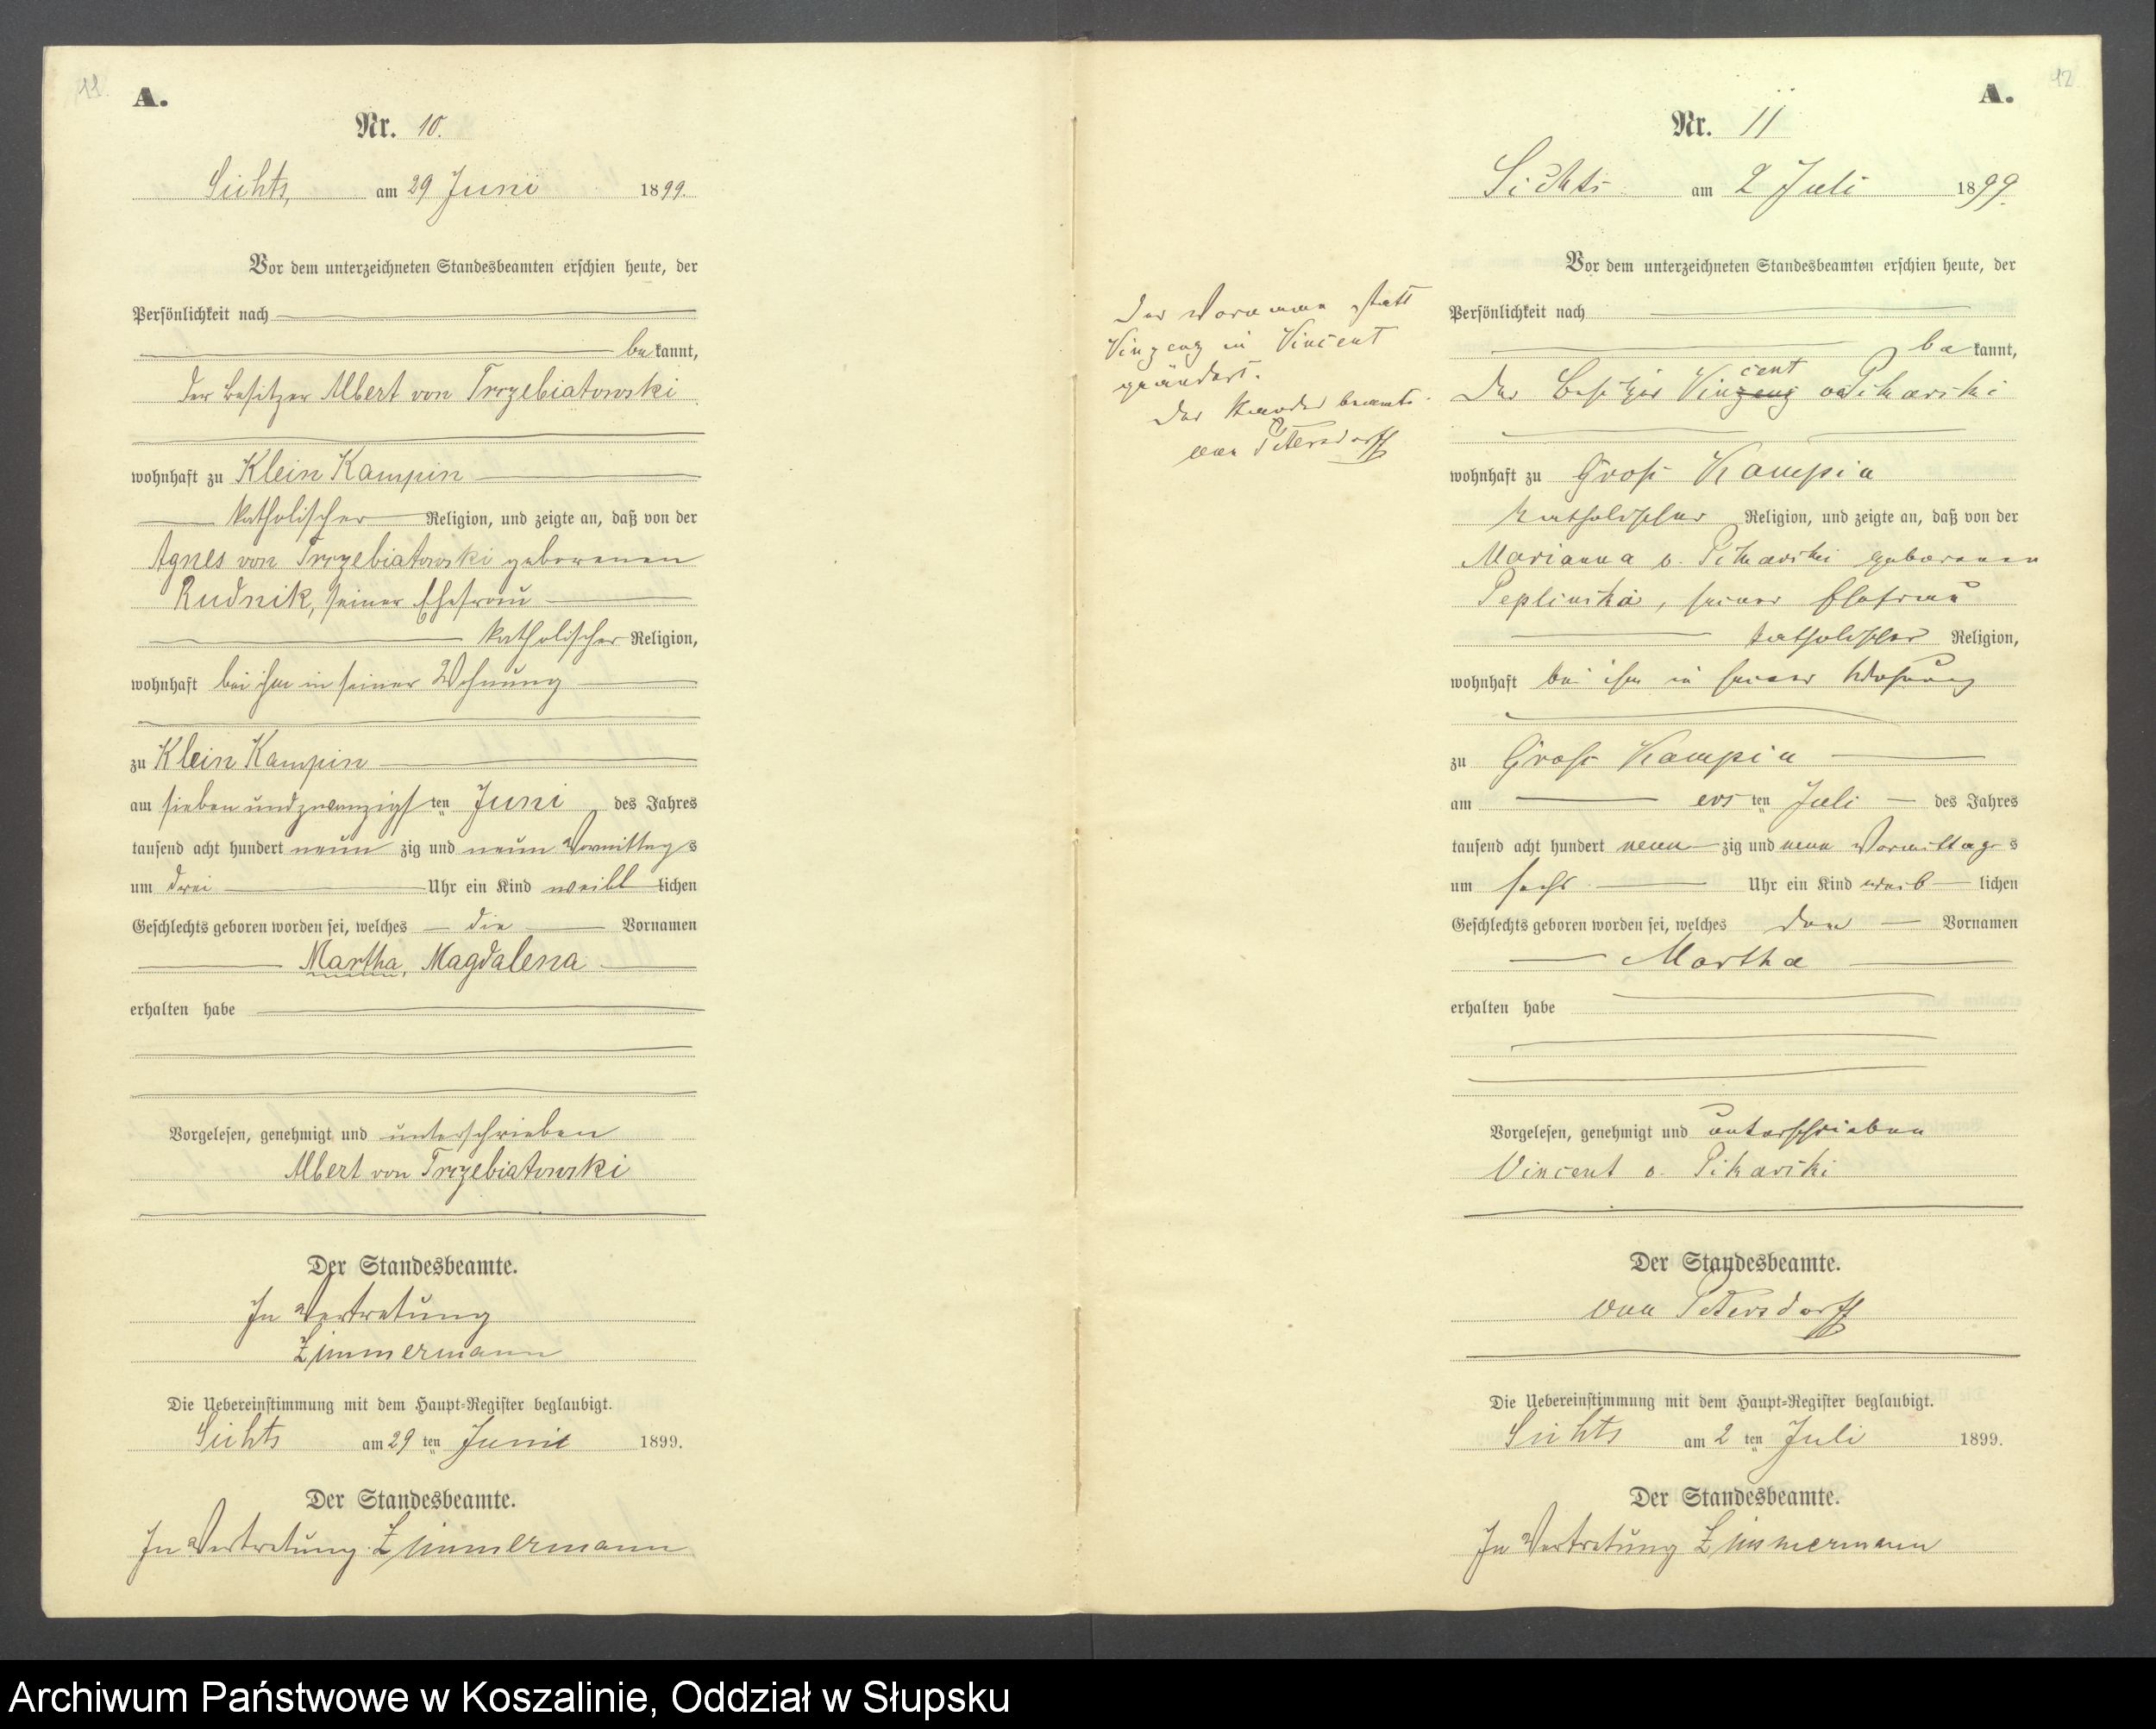 11.
A.
Nr. 10.
Sichts, am 29 Juni 1899.
Vor dem unterzeichneten Standesbeamten erschien heute, der
Persönlichkeit nach
be kannt,
der Besitzer Albert von Trzebiatowski
wohnhaft zu Klein Kampin
katholischer Religion, und zeigte an, daß von der
Agnes von Trzebiatowski geborenen
Rudnik, seiner Ehefrau
katholischer Religion,
wohnhaft bei ihm in seiner Wohnung
zu Klein Kampin
am sieben und zwanzigs ten Juni des Jahres
tausend acht hundert neun zig und neun Vormittag s
um drei Uhr ein Kind weibl lichen
Geschlechts geboren worden sei, welches die Vornamen
Martha, Magdalena
erhalten habe
Vorgelesen, genehmigt und unterschrieben
Albert von Trzebiatowski
Der Standesbeamte.
In Vertretung
Zimmermann
Die Uebereinstimmung mit dem Haupt-Register beglaubigt.
Sichts am 29 ten Juni 1899.
Der Standesbeamte.
In Vertretung Zimmermann
12
A.
Nr. 11
Sichts am 2 Juli 1899.
Vor dem unterzeichneten Standesbeamten erschien heute, der
Persönlichkeit nach
be kannt,
cent
Der Besitzer Vinzenz v Pikarski
wohnhaft zu Groß Kampin
katholischer Religion, und zeigte an, daß von der
Marianna v. Pikarski geborenen
Peplinska, seiner Ehefrau
katholischer Religion,
wohnhaft bei ihm in seiner Wohnung
zu Groß Kampin
am ers ten Juli des Jahres
tausend acht hundert neun zig und neun Vormittag s
um sechs Uhr ein Kind weib lichen
Geschlechts geboren worden sei, welches den Vornamen
Martha
erhalten habe
Vorgelesen, genehmigt und unterschrieben
Vincent v. Pikarski
Der Standesbeamte.
von Petersdorff
Die Uebereinstimmung mit dem Haupt-Register beglaubigt.
Sichts am 2 ten Juli 1899.
Der Standesbeamte.
In Vertretung Zimmermann
Der Vorname statt
Vinzenz in Vincent
geändert.
Der Standesbeamte.
von Petersdorff
Archiwum Państwowe w Koszalinie, Oddział w Słupsku